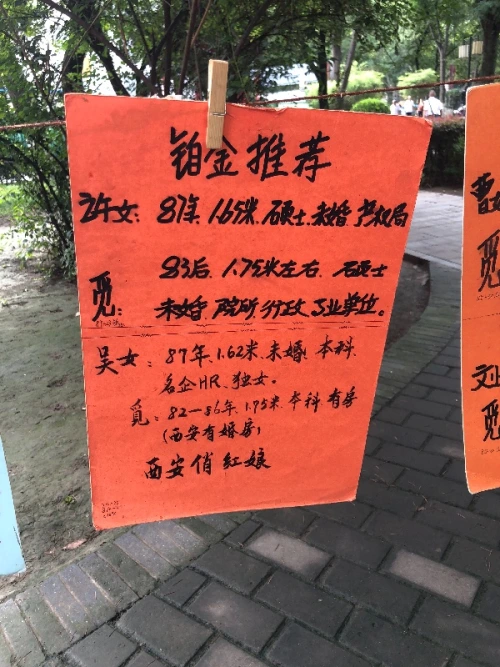 铂金推荐
许女:87年、1.65米、硕士、未婚、产权局
觅:83后、1.75米左右、硕士
未婚、院所、行政、事业单位。
吴女:87年、1.62米、未婚、本科、
名企HR、独女。
觅:82—86年、1.75米、本科有房
(西安有婚房)
西安俏红娘
曹
觅
文
觅